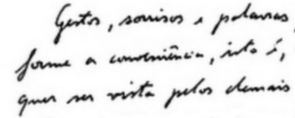 Gestos, sorrisos e palavras,
forme a conveniência, isto é,
quer ser vista pelos demais